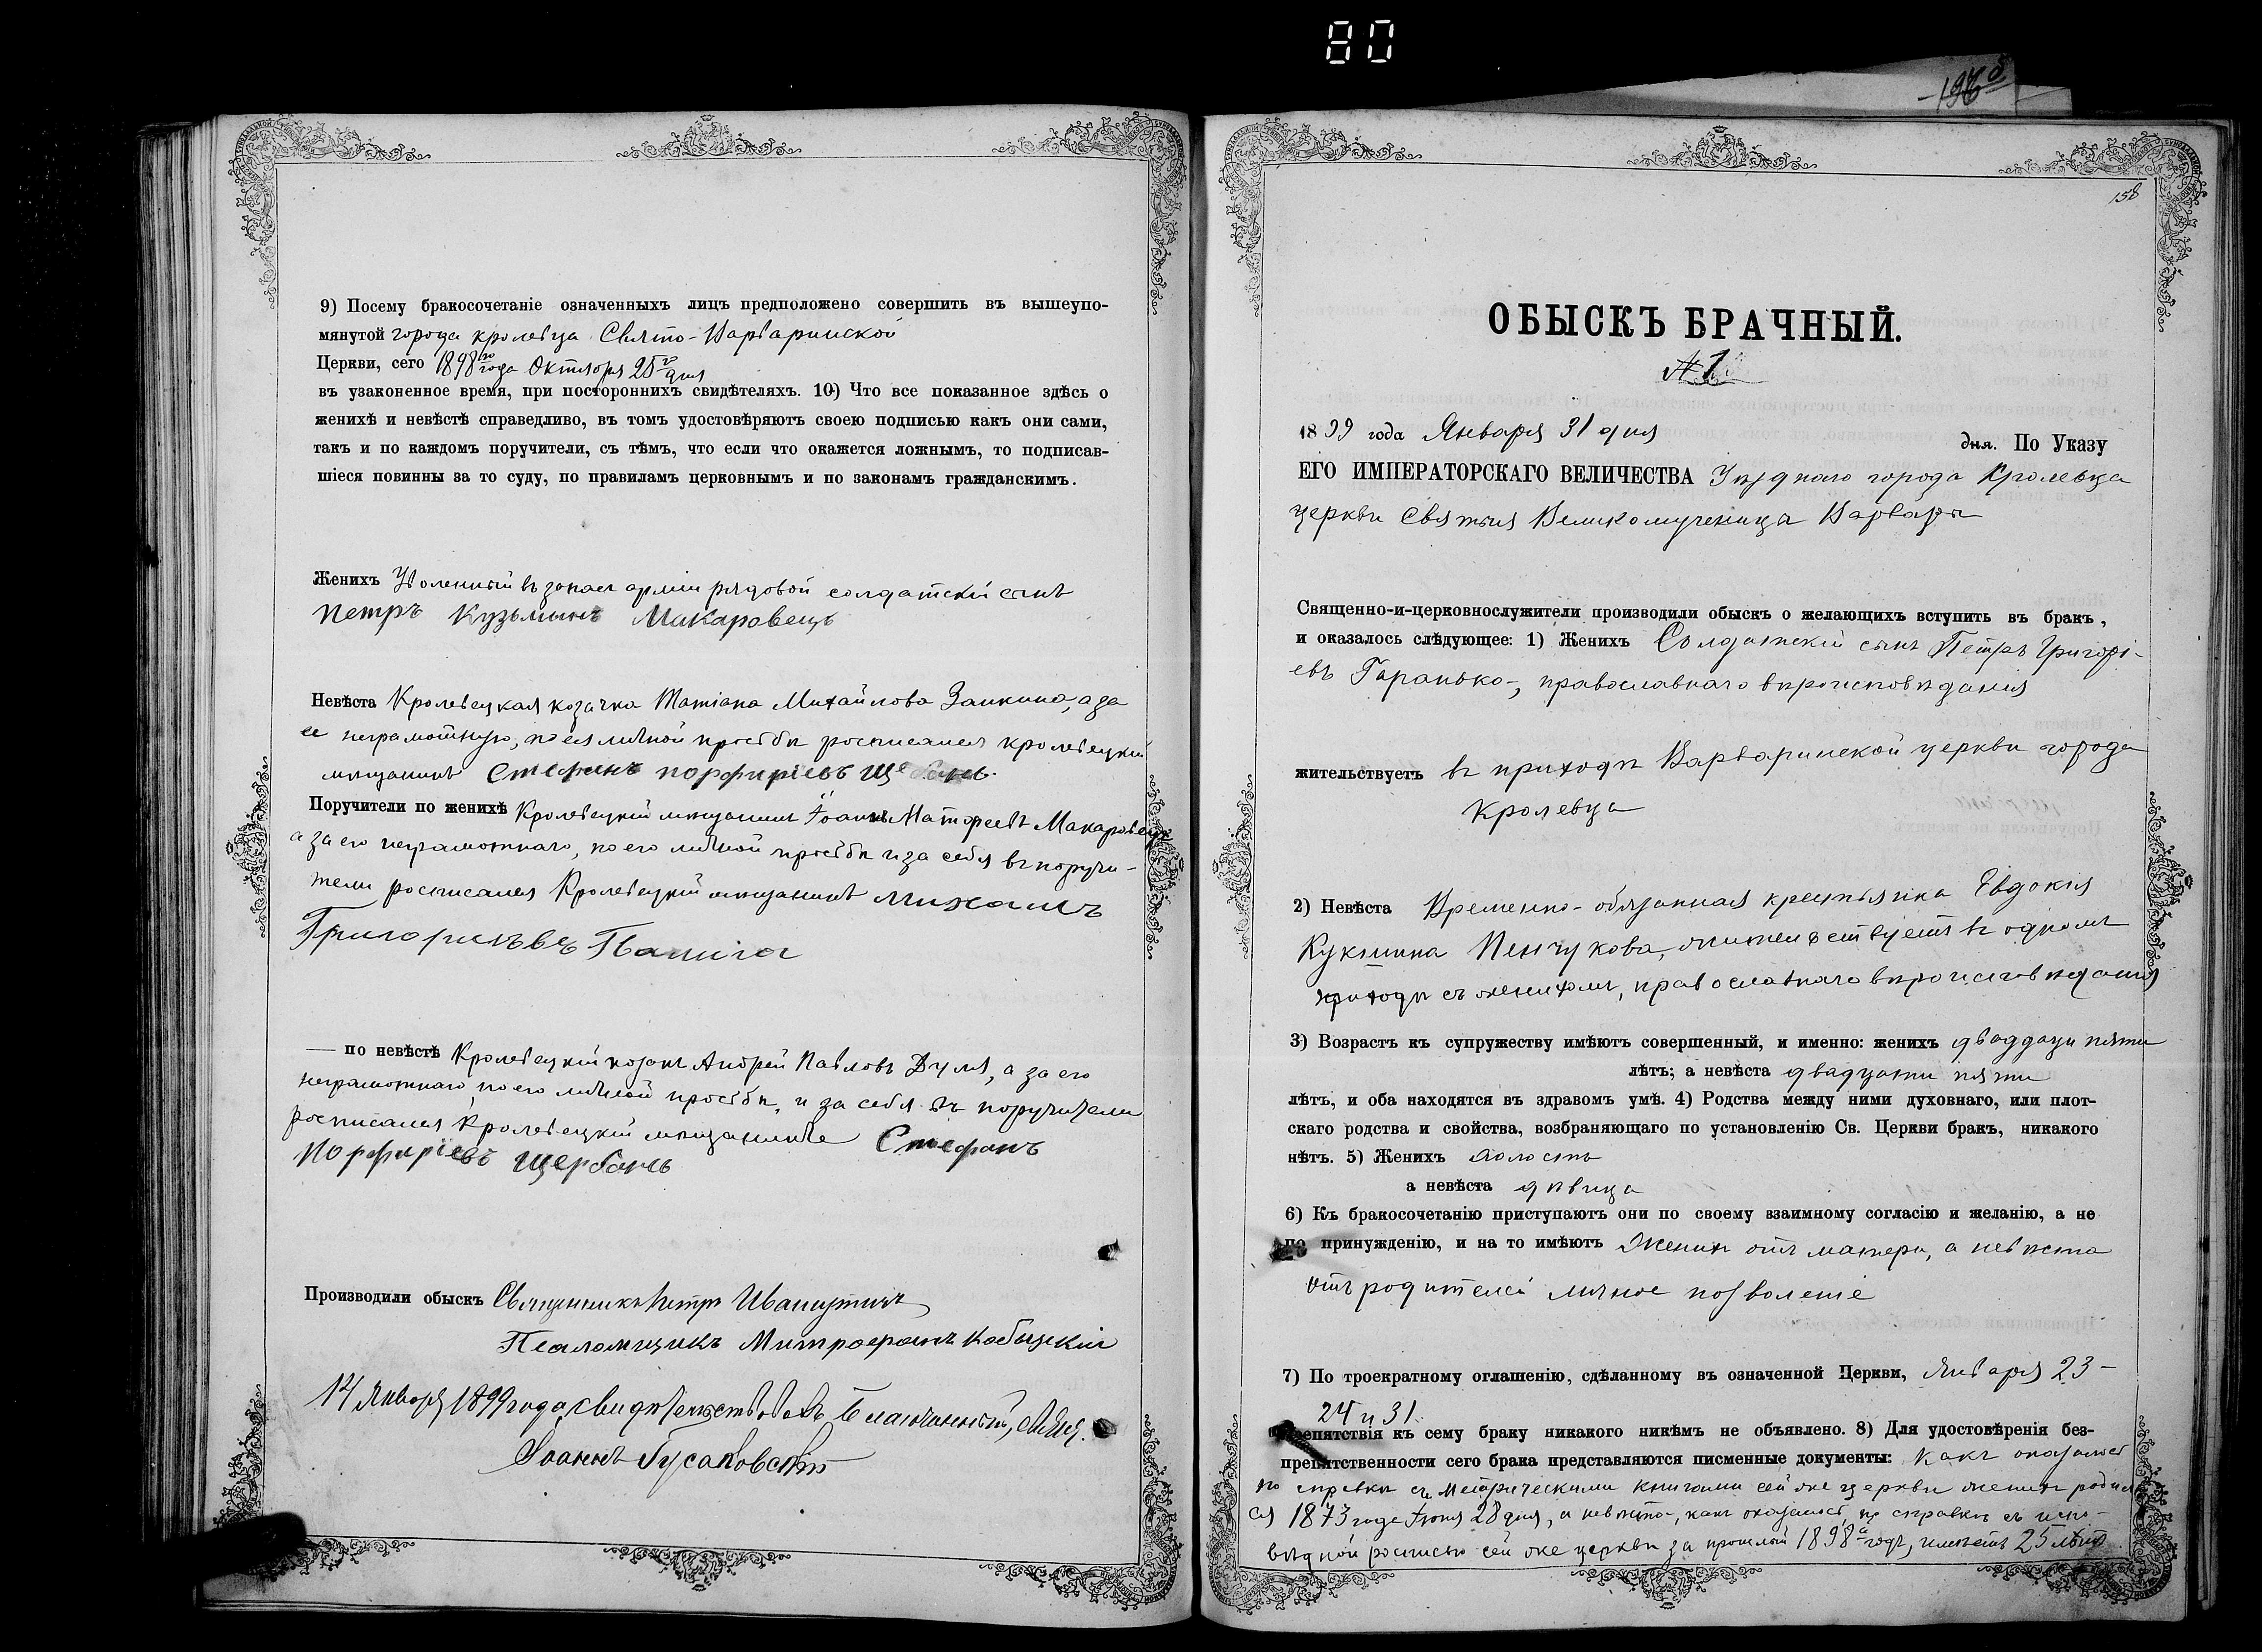 80
9) Посему бракосочетаніе означенныхъ лицъ предположено совершить въ вышеупо-
мянутой города кролевца Свято-Варваринской
Церкви, сего 1898го года Октября 25го дня
въ узаконенное время, при постороннихъ свидѣтеляхъ. 10) Что все показанное здѣсь о
женихѣ и невѣстѣ справедливо, въ томъ удостовѣряютъ своею подписью какъ они сами,
такъ и по каждомъ поручители, съ тѣмъ, что если что окажется ложнымъ, то подписав-
шіеся повинны за то суду, по правиламъ церковнымъ и по законамъ гражданскимъ.
Женихъ Уволенный въ запасъ арміи рядовой солдатскій сынъ
Петръ Кузьминъ Макаровецъ
Невѣста Кролевецкая козачка Татіана Михайлова Заикина, а за
ее неграмотную, по ея личной просьбѣ росписался кролевецкій
мѣщанинъ Стефанъ порфиріевъ Щербань.
Поручители по женихѣ Кролевецкій мѣщанинъ Іоаннъ Матфеевъ Макаровецъ
а за его неграмотнаго, по его личной просьбѣ и за себя въ поручи-
тели росписался Кролевецкій мѣщанинъ Михаилъ
Григорьевъ
— по невѣстѣ Кролевецкій козакъ Андрей Павловъ Дуля, а за его
неграмотнаго, по его личной просьбѣ, и за себя въ поручители
росписался Кролевецкій мѣщанинъ Стефанъ
Порфиріевъ Щербань
Производили обыскъ Священникъ Петръ Иванутичъ
Псаломщикъ Митрофанъ Кобыжскій
14 Января 1899 года свидѣтельствовалъ Благочинный, Свящ.
Іоаннъ Гусаковскій
158
ОБЫСКЪ БРАЧНЫЙ.
№ 1
1899 года Января 31 дня дня. По Указу
ЕГО ИМПЕРАТОРСКАГО ВЕЛИЧЕСТВА Уѣзднаго города Кролевца
церкви Святыя Великомученица Варвары
Священно-и-церковнослужители производили обыскъ о желающихъ вступить въ бракъ,
и оказалось слѣдующее: 1) Женихъ Солдатскій сынъ Петръ Григорі-
евъ Гаранько, православнаго вѣроисповѣданія
жительствуетъ въ приходѣ Варваринской церкви города
Кролевца
2) Невѣста Временно-обязанная крестьянка Евдокія
Кузьмина Пенчукова, жительствуетъ въ одномъ
приходѣ съ женихомъ, православнаго вѣроисповѣданія
3) Возрастъ къ супружеству имѣютъ совершенный, и именно: женихъ двадцати пяти
лѣтъ; а невѣста двадцати пяти
лѣтъ, и оба находятся въ здравомъ умѣ. 4) Родства между ними духовнаго, или плот-
скаго родства и свойства, возбраняющаго по установленію Св. Церкви бракъ, никакого
нѣтъ. 5) Женихъ холостъ
а невѣста дѣвица
6) Къ бракосочетанію приступаютъ они по своему взаимному согласію и желанію, а не
по принужденію, и на то имѣютъ Женихъ отъ матери, а невѣста
отъ родителей личное позволеніе
7) По троекратному оглашенію, сдѣланному въ означенной Церкви, Января 23-
24 и 31.
препятствія къ сему браку никакого никѣмъ не объявлено. 8) Для удостовѣренія без-
препятственности сего брака представляются писменные документы: Какъ оказалось
по справкѣ съ метрическими книгами сей же церкви женихъ родил
ся 1873 года Іюня 28 дня, а невѣста, какъ оказалось, по справкѣ съ испо-
вѣдной росписью сей же церкви за прошлый 1898й годъ, имѣетъ 25 лѣтъ